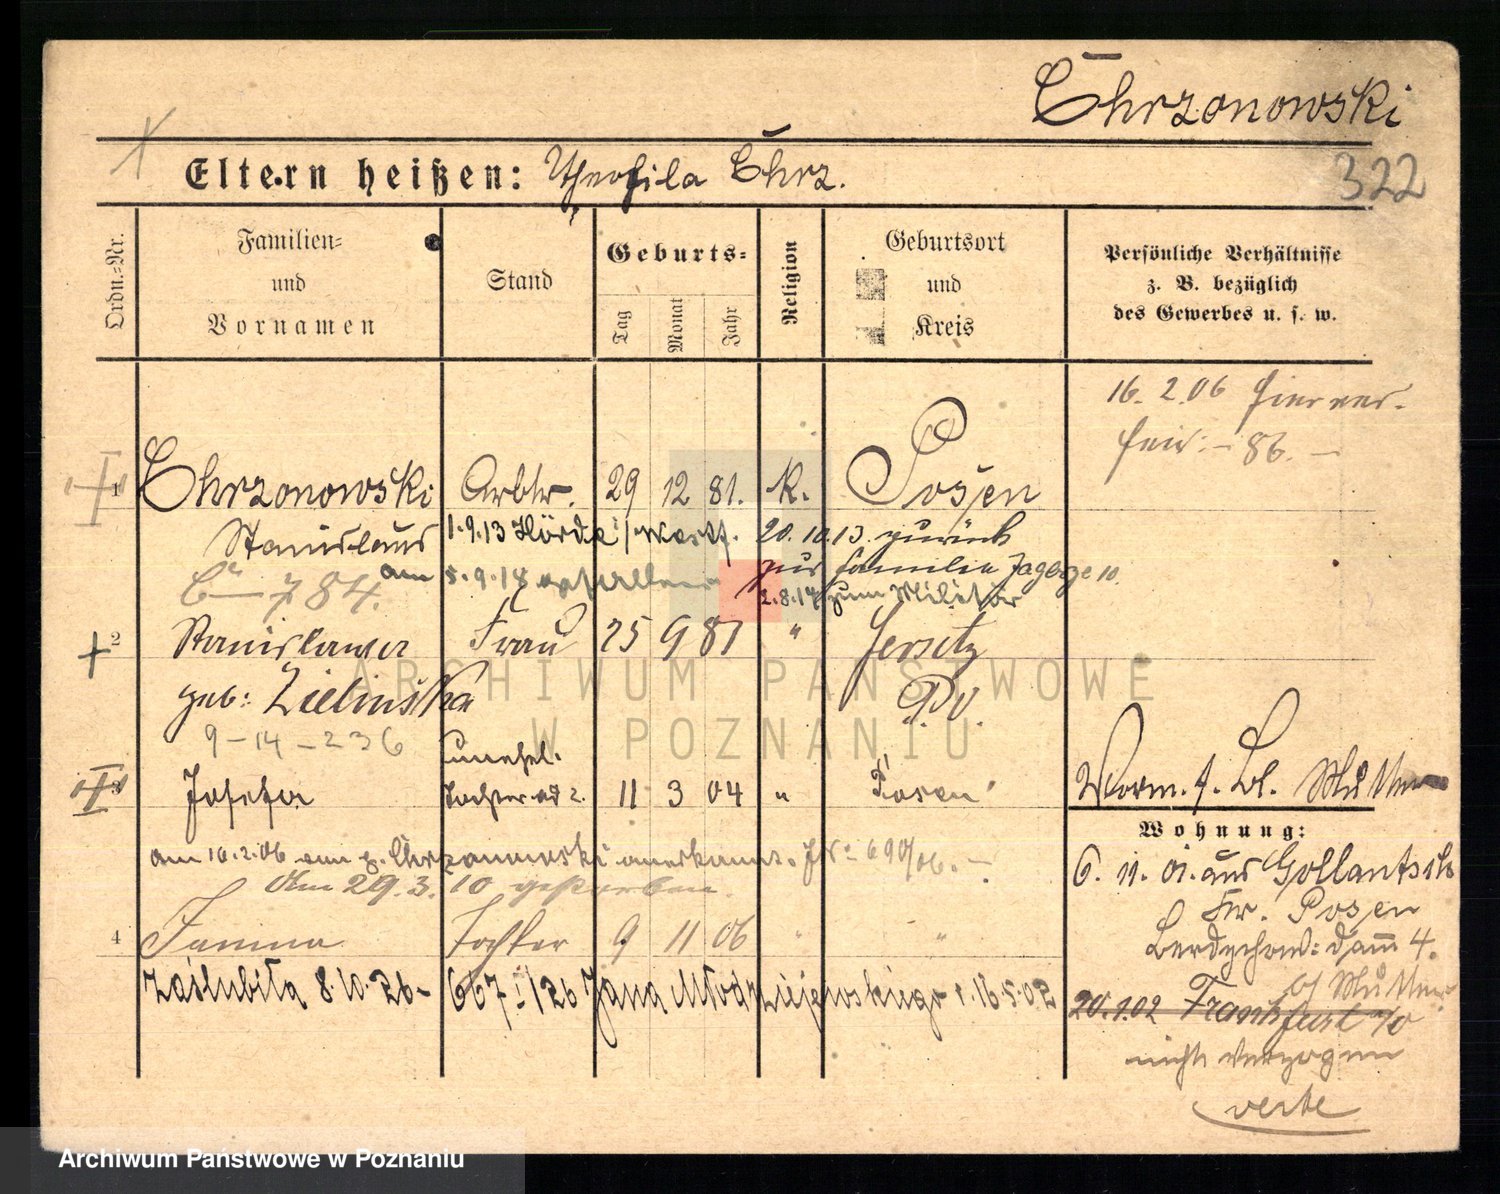 Chrzonowski
Eltern heißen: Theofila Chrz.
322
Ordn.-Nr.
Familien-
und
Vornamen
Stand
Geburts-
Tag
Monat
Jahr
Religion
Geburtsort
und
Kreis
Persönliche Verhältnisse
z. B. bezüglich
des Gewerbes u. s. w.
16. 2. 06
86.
1 Chrzonowski Arbtr. 29 12 81. k. Posen
Stanislaus 1.9.13 Hörde i/Westf. 20.10.13. zurück
zur Familie Jagerze 10.
784. am 5.9.18 gefallen 2.8.14 zum Militär
2 Stanislawa Frau 25 9 87 " Jersitz
geb: Zielinska P.O.
9-14-236
unehel.
3 Josefa Tochter ad 2. 11 3 04 " Posen
am 16.2.06 vom g. Chrzanowski anerkannt. J.N: 690/06.
Am 29.3.10 gestorben.
4 Janina Tochter 9 11 06 " "
zaślubiła 8.10.26- 667 I/26 Jana Młodziejewskiego r. 16.5.02
Vorm. f. bl. Mutter
Wohnung:
6. 11. 01. aus Gollantsch
Kr. Posen
Berdychow: damm 4.
b/ Mutter
20.1.02 Frankfurt a/O
nicht verzogen
verte
ARCHIWUM PAŃSTWOWE
W POZNANIU
Archiwum Państwowe w Poznaniu